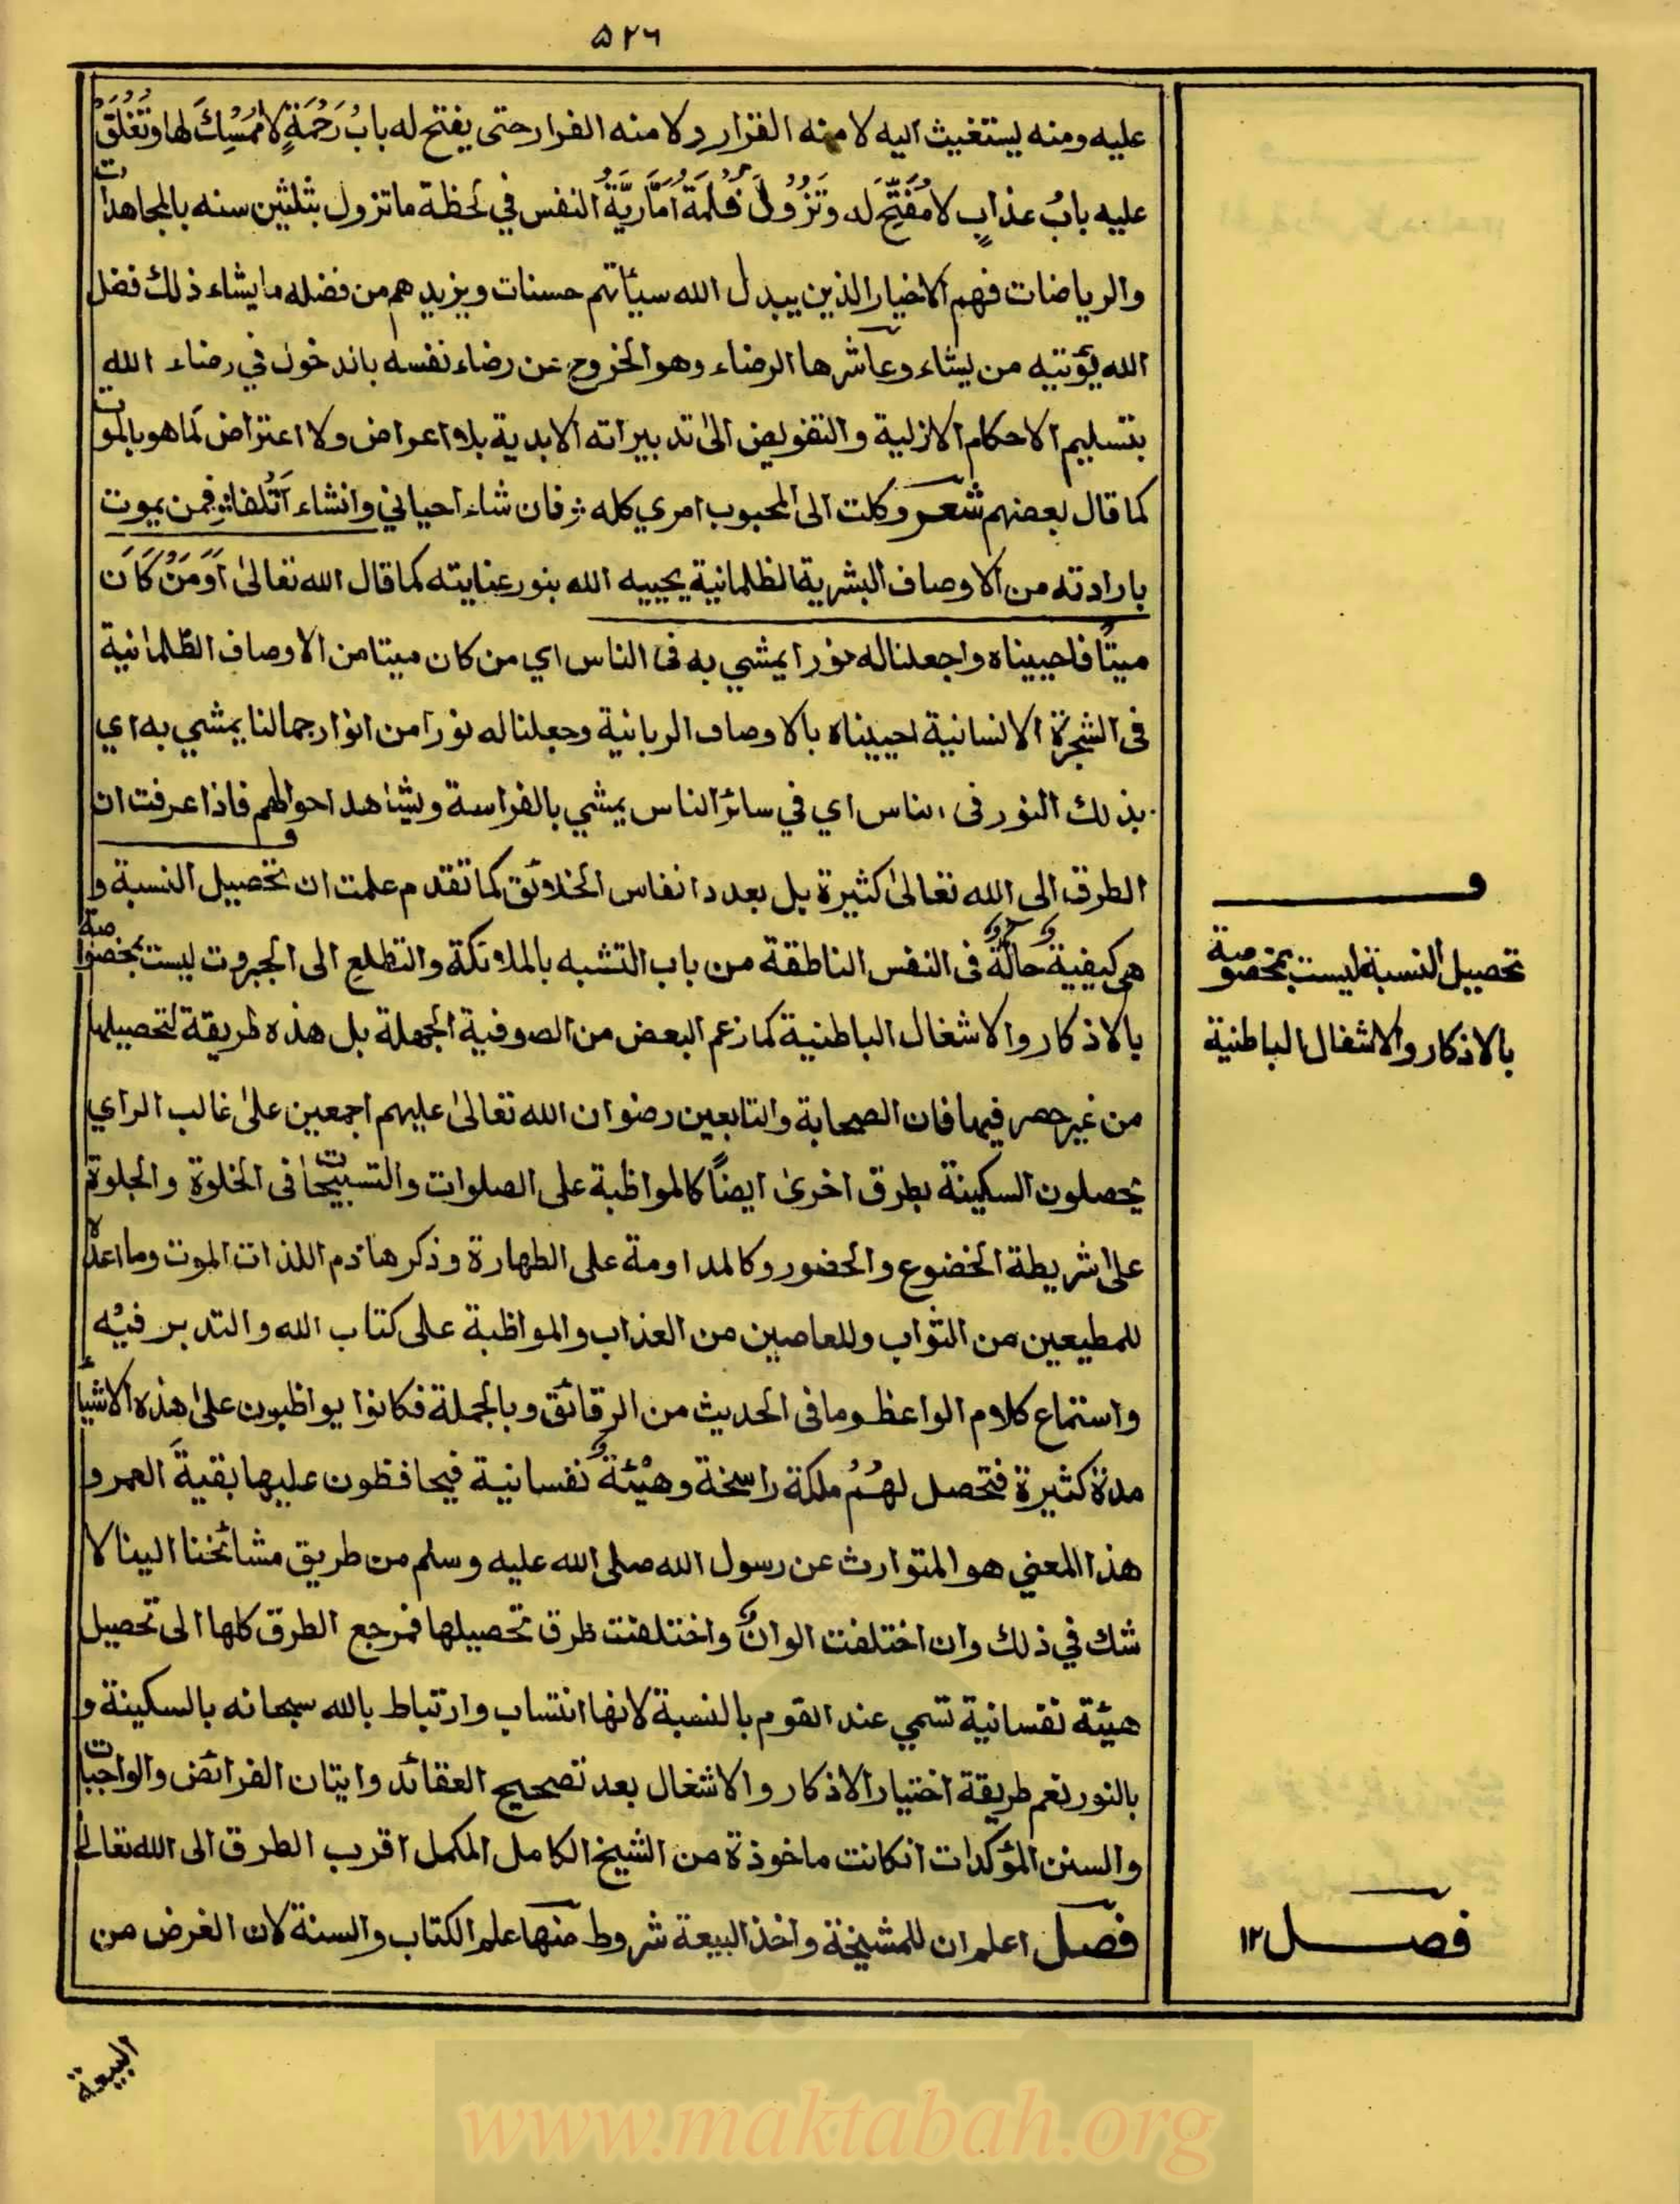 ۵۲۶
عليه ومنه ليستغيث اليه لا منه الفرار ولا منه الفرار حتى يفتح له بابُ رَحْمَةٍ لا مُمْسِكَ لها وتَغْلَقُ
عليه بابُ عذابٍ لا مُفَتِّحَ له وتَزُوْلُ ظُلْمَةُ اَمَّارِيَّةُ النفس في لحظة ما تزول بثلثين سنه بالمجاهدات
والرياضات فهم الاخيار الذين يبدل الله سيئاتهم حسنات ويزيدهم من فضله ما يشاء ذلك فضل
الله يؤتيه من يشاء وعاشرها الرضاء وهو الخروج عن رضاء نفسه باندخول في رضاء الله
بتسليم الاحكام الازلية والتفويض الى تدبيراته الابدية بلا اعراض ولا اعتراض كما هو بالموت
كما قال بعضهم شعر وكلت الى المحبوب امري كله ؛ فان شاء احياني وانشاء اَتْلفا؛ فمن يموت
بارادته من الاوصاف البشرية الظلمانية يحييه الله بنور عنايته كما قال الله تعالىٰ اَوَمَنْ كَانَ
ميتًا فاحييناه واجعلنا له نورا يمشي به فى الناس اي من كان ميتا من الاوصاف الظلمانية
فى الشجرة الانسانية احييناه بالاوصاف الربانية وجعلنا له نورا من انوار جمالنا يمشي به اي
بذلك النور فى الناس اي في سائر الناس يمشي بالفراسة ويشاهد احوالهم فاذا عرفت ان
الطرق الى الله تعالىٰ كثيرة بل بعدد انفاس الخلائق كما تقدم علمت ان تحصيل النسبة و
هي كيفيةٌ حالةٌ فى النفس الناطقة من باب التشبه بالملائكة والتطلع الى الجبروت ليست بمخصوصة
بالاذكار والاشغال الباطنية كما زعم البعض من الصوفية الجهلة بل هذه طريقة لتحصيلها
من غير حصر فيها فان الصحابة والتابعين رضوان الله تعالىٰ عليهم اجمعين علىٰ غالب الراي
يحصلون السكينة بطرق اخرىٰ ايضًا كالمواظبة على الصلوات والتسبيحات فى الخلوة والجلوة
علىٰ شريطة الخضوع والحضور وكالمداومة على الطهارة وذكر هاذم اللذات الموت وما اعده
للمطيعين من الثواب وللعاصين من العذاب والمواظبة على كتاب الله والتدبر فيه
واستماع كلام الواعظ وما فى الحديث من الرقائق وبالجملة فكانوا يواظبون علىٰ هذه الاشياء
مدة كثيرة فتحصل لهُمْ ملكة راسخة وهيْئَةٌ نفسانية فيحافظون عليها بقيةَ العمر و
هذا المعني هو المتوارث عن رسول الله صلى الله عليه وسلم من طريق مشائخنا الينا لا
شك في ذلك وان اختلفت الوانٌ واختلفت طرق تحصيلها فمرجع الطرق كلها الى تحصيل
هيئة نفسانية تسمي عند القوم بالنسبة لانها انتساب وارتباط بالله سبحانه بالسكينة و
بالنور نعم طريقة اختيار الاذكار والاشغال بعد تصحيح العقائد وايتان الفرائض والواجبات
والسنن المؤكدات انكانت ماخوذة من الشيخ الكامل المكمل اقرب الطرق الى الله تعالىٰ
فصل اعلم ان للمشيخة واخذ البيعة شروط منها علم الكتاب والسنة لان الغرض من
تحصيل النسبة ليست بمخصوصة
بالاذكار والاشغال الباطنية
فصل ١٢
البيعة
www.maktabah.org